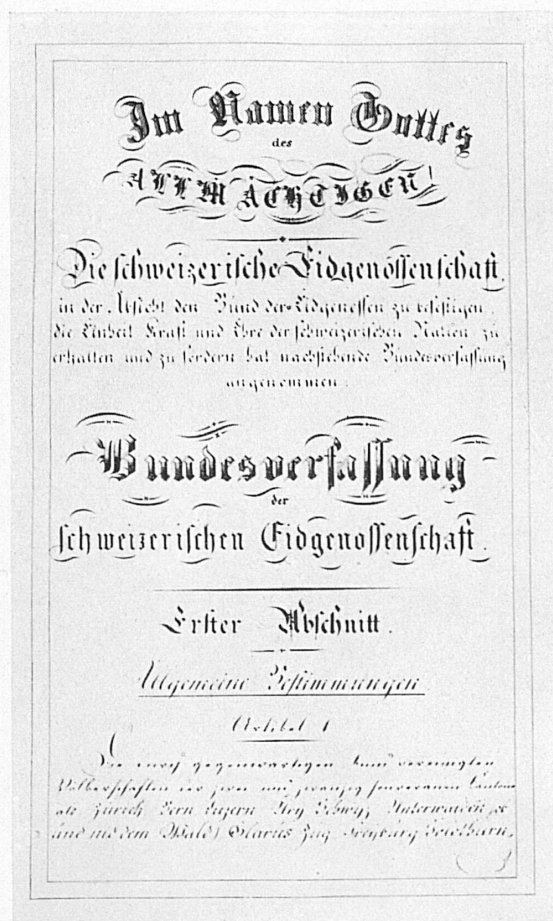 Im Namen Gottes
des
ALLMÄCHTIGEN!
Die schweizerische Eidgenossenschaft,
in der Absicht den Bund der Eidgenossen zu befestigen,
die Einheit Kraft und Ehre der schweizerischen Nation zu
erhalten und zu fördern hat nachstehende Bundesverfassung
angenommen:
Bundesverfassung
der
schweizerischen Eidgenossenschaft.
Erster Abschnitt.
Allgemeine Bestimmungen
Artikel 1
Die durch gegenwärtigen Bund vereinigten
Völkerschaften der zwei und zwanzig souveränen Kantone
als Zürich Bern Luzern Ury Schwyz Unterwalden ob
und nid dem Wald Glarus Zug Freyburg Solothurn,